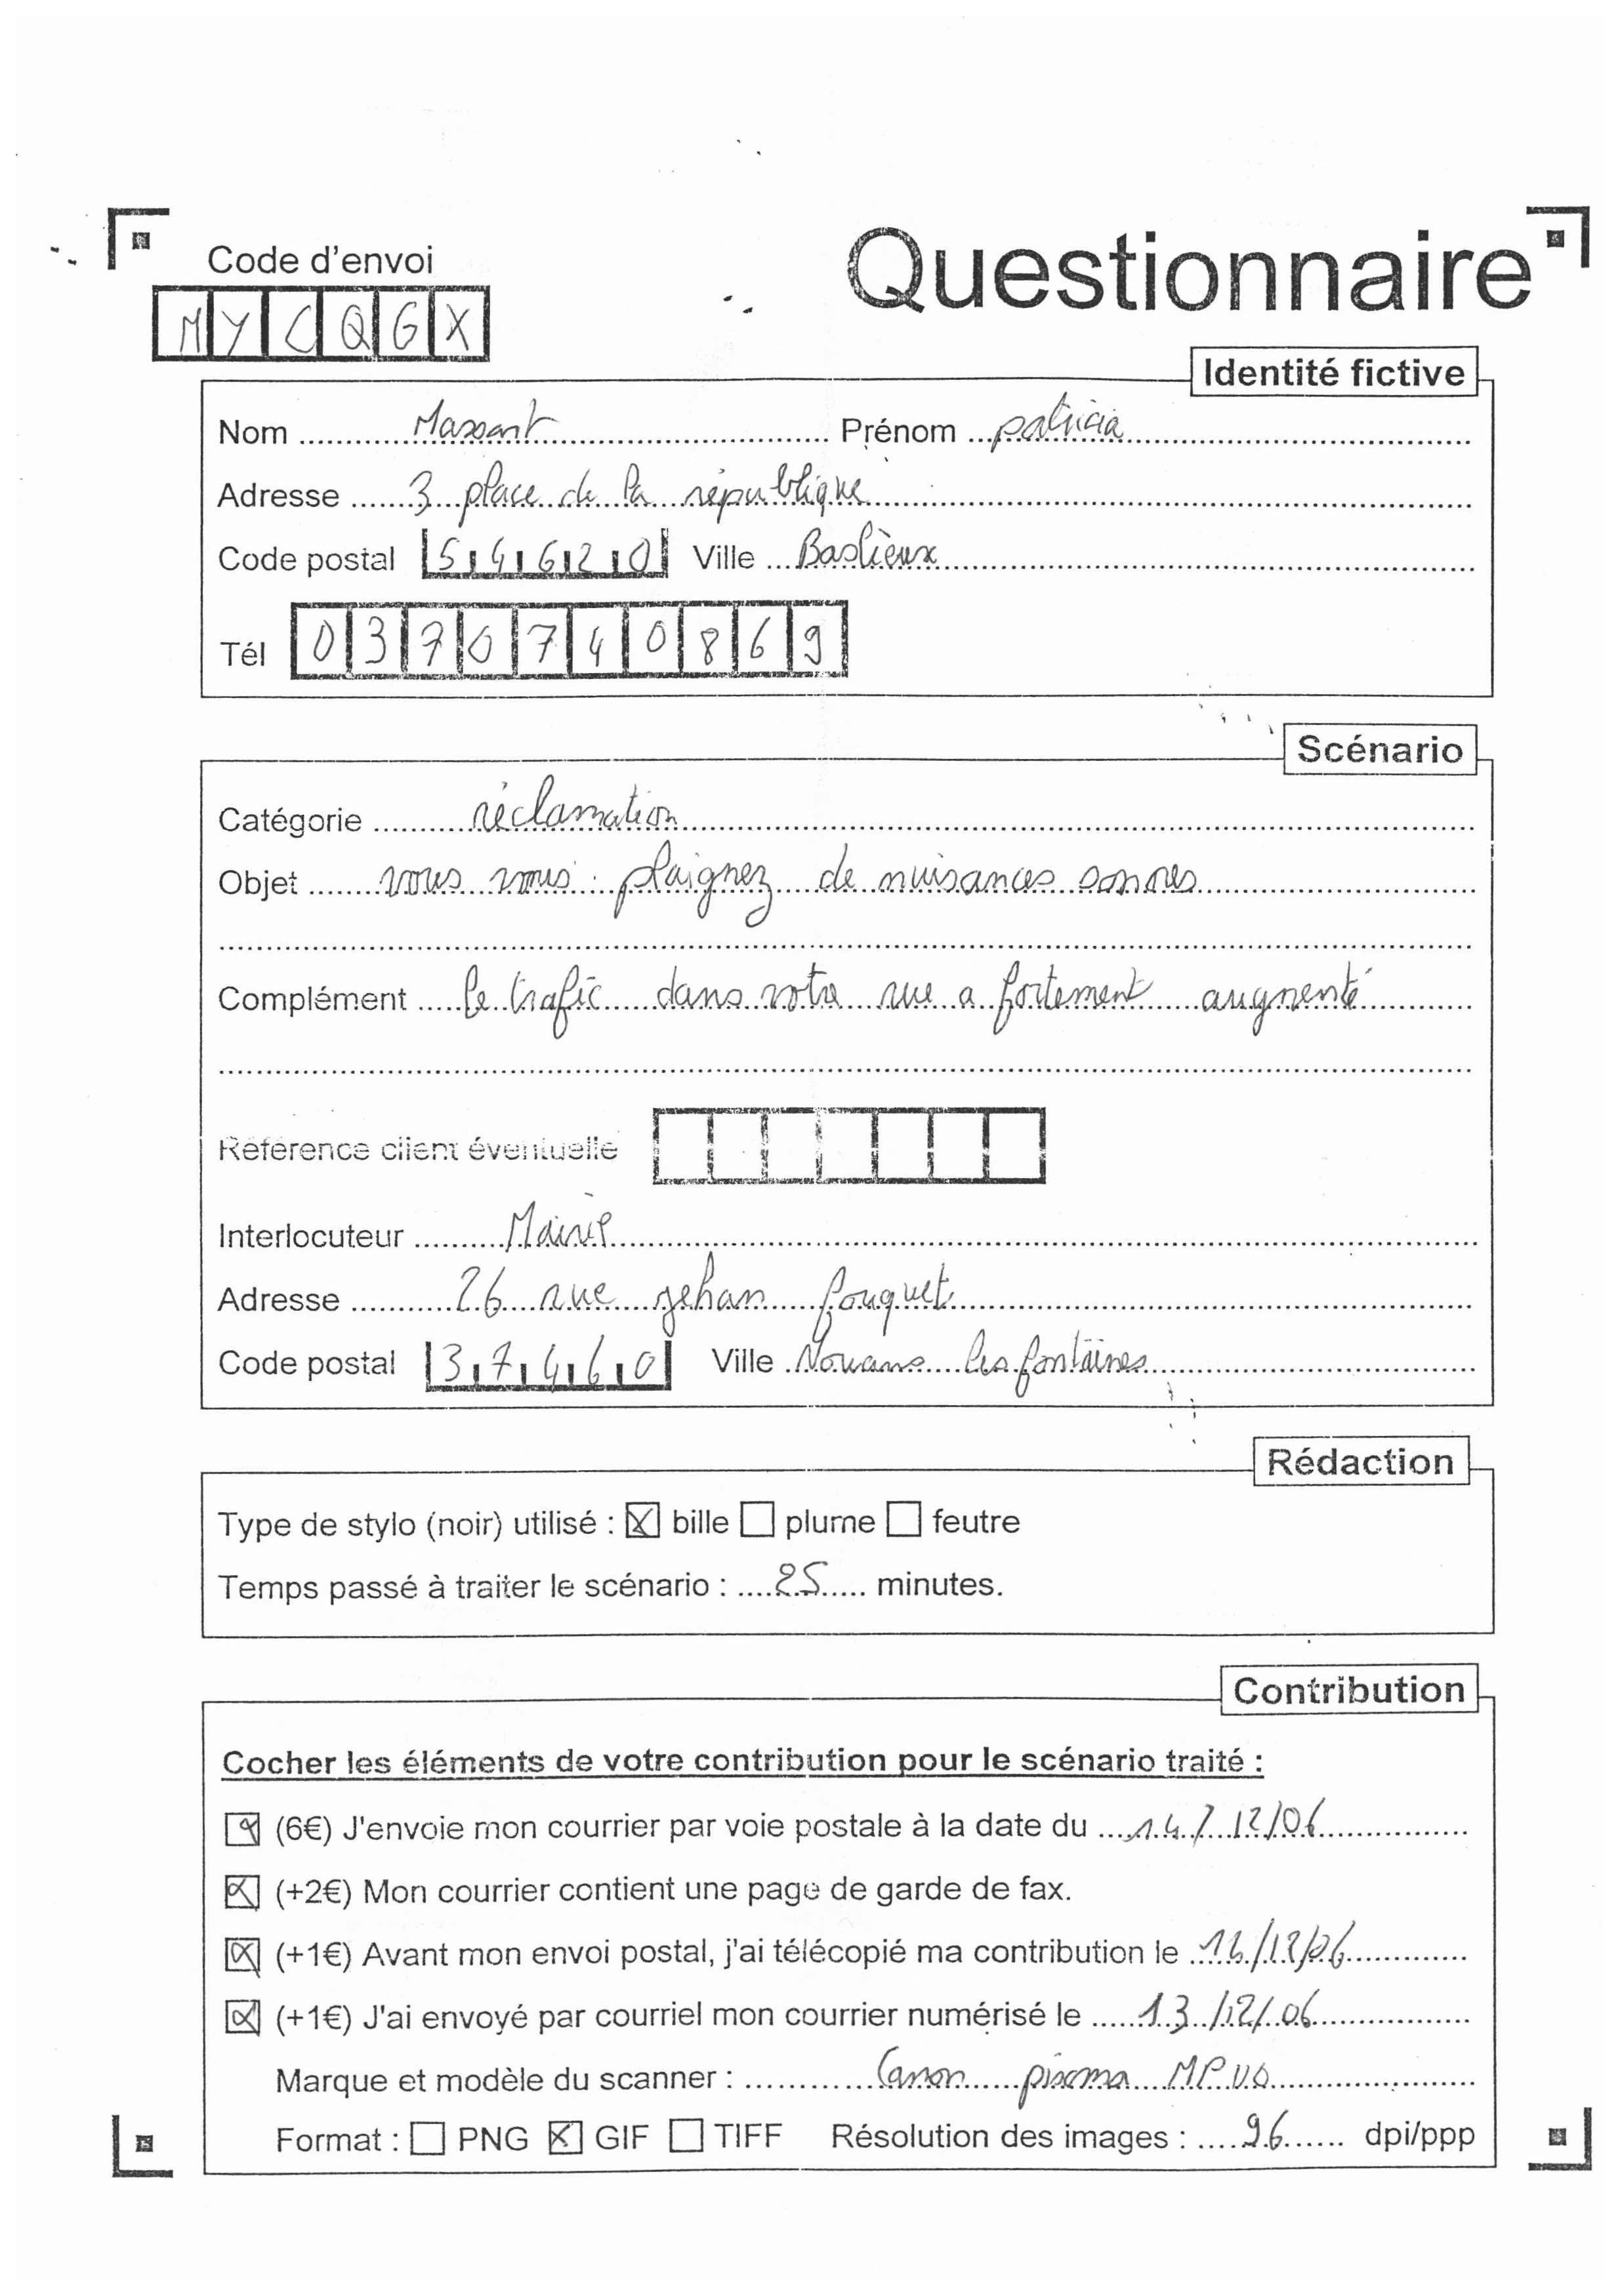 Code d'envoi
Questionnaire
MYCQGX
Identité fictive
Nom Massant Prénom patricia
Adresse 3 place de la république
Code postal 54620 Ville Baslieux
Tél 0370740869
Scénario
Catégorie réclamation
Objet vous vous plaignez de nuisances sonores
Complément le trafic dans votre rue a fortement augmenté
Référence client éventuelle
Interlocuteur Mairie
Adresse 26 rue jehan fouquet
Code postal 37460 Ville Nouans les fontaines
Rédaction
Type de stylo (noir) utilisé : bille plume feutre
Temps passé à traiter le scénario : 25 minutes.
Contribution
Cocher les éléments de votre contribution pour le scénario traité :
(6€) J'envoie mon courrier par voie postale à la date du 14/12/06
(+2€) Mon courrier contient une page de garde de fax.
(+1€) Avant mon envoi postal, j'ai télécopié ma contribution le
(+1€) J'ai envoyé par courriel mon courrier numérisé le 13/12/06
Marque et modèle du scanner : Canon pixma
Format : PNG GIF TIFF Résolution des images : 96 dpi/ppp